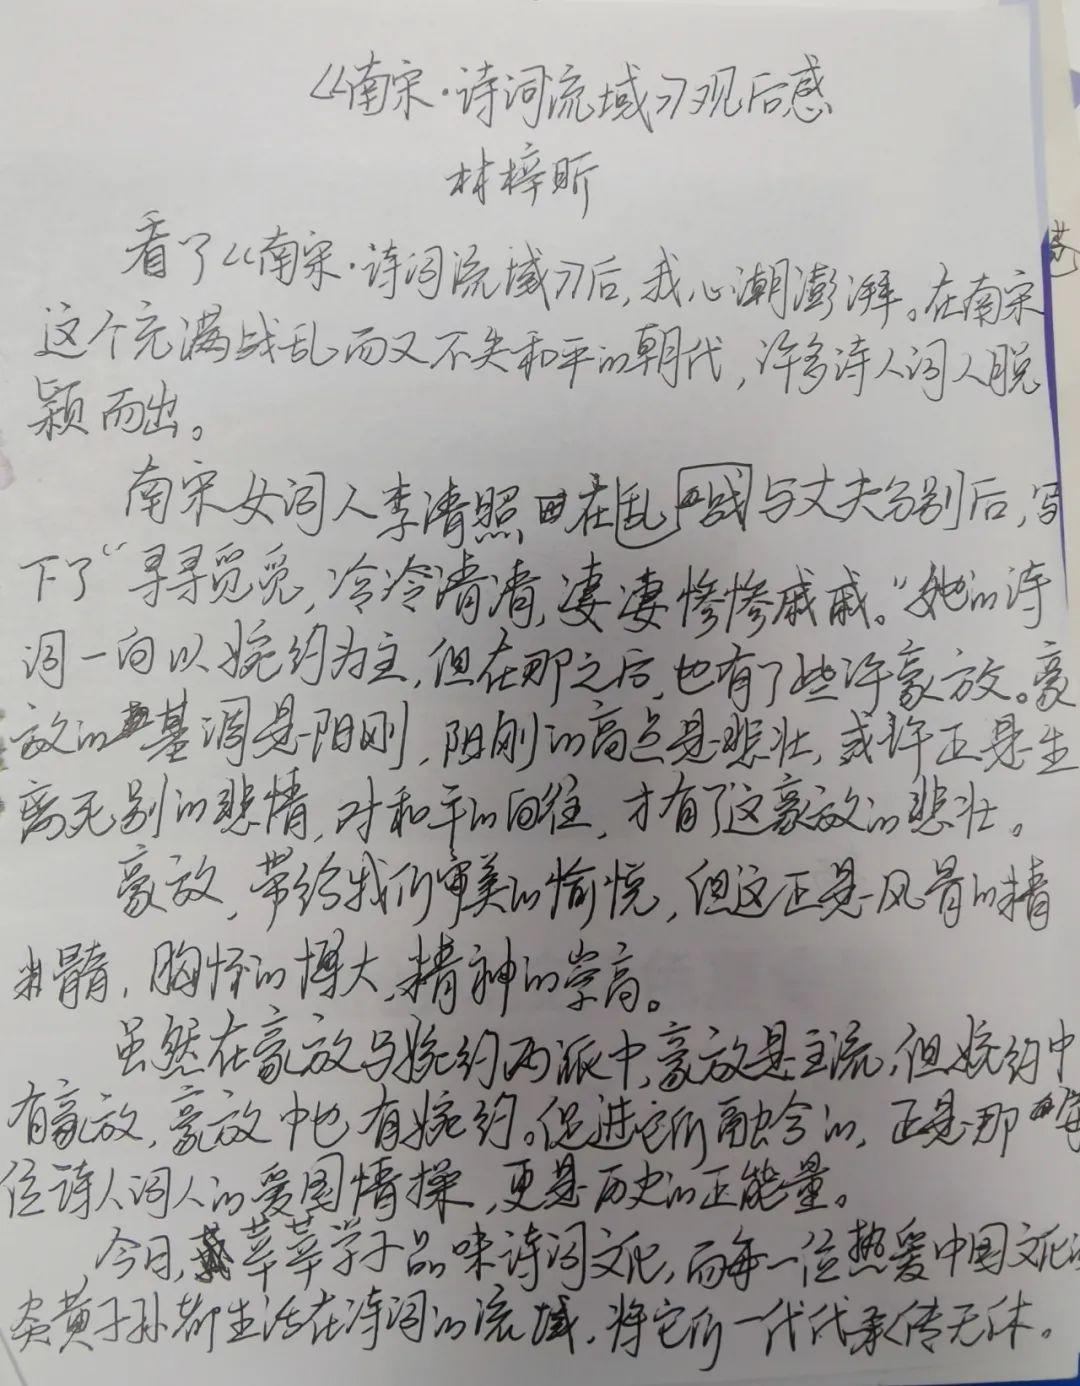 《南宋·诗词流域》观后感
林梓昕
看了《南宋·诗词流域》后,我心潮澎湃。在南宋
这个充满战乱而又不失和平的朝代,许多诗人词人脱
颖而出。
南宋女词人李清照在乱战与丈夫分别后,写
下了“寻寻觅觅,冷冷清清,凄凄惨惨戚戚。”她的诗
词一向以婉约为主,但在那之后,也有了些许豪放。豪
放的基调是阳刚,阳刚的高点是悲壮,或许正是生
离死别的悲情,对和平的向往,才有了这豪放的悲壮。
豪放,带给我们审美的愉悦,但这正是风骨的精
髓,胸怀的博大,精神的崇高。
虽然在豪放与婉约两派中,豪放是主流,但婉约中
有豪放,豪放中也有婉约。促进它们融合的,正是那每
位诗人词人的爱国情操,更是历史的正能量。
今日,莘莘学子品味诗词文化,而每一位热爱中国文化的
炎黄子孙都生活在诗词的流域,将它们一代代承传无休。